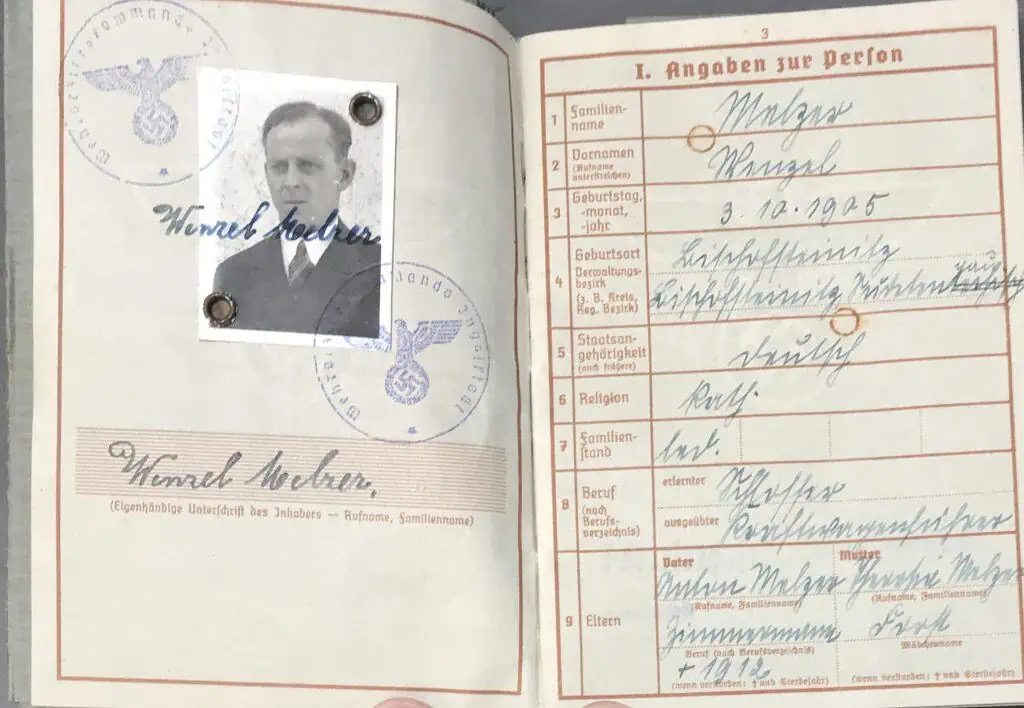 Wehrbezirkskommando Ingolstadt
Wenzel Melzer
Wehrbezirkskommando Ingolstadt
Wenzel Melzer.
(Eigenhändige Unterschrift des Inhabers — Rufname, Familienname)
3
I. Angaben zur Person
1 Familien-
name
Melzer
2 Vornamen
(Rufname
unterstreichen)
Wenzel
3 Geburtstag,
-monat,
-jahr
3.10.1905
4 Geburtsort
Verwaltungs-
bezirk
(z. B. Kreis,
Reg. Bezirk)
Bischofteinitz
Bischofteinitz, Sudetengau
5 Staatsan-
gehörigkeit
(auch frühere)
deutsch
6 Religion
kath.
7 Familien-
stand
led.
8 Beruf
(nach
Berufs-
verzeichnis)
erlernter
Schlosser
ausgeübter
Kraftwagenführer
9 Eltern
Vater
Mutter
Anton Melzer
Theresia Melzer
(Rufname, Familienname)
(Rufname, Familienname)
Zimmermann
Forst
Beruf (nach Berufsverzeichnis)
Mädchenname
+ 1912
(wenn verstorben: † und Sterbejahr)
(wenn verstorben: † und Sterbejahr)